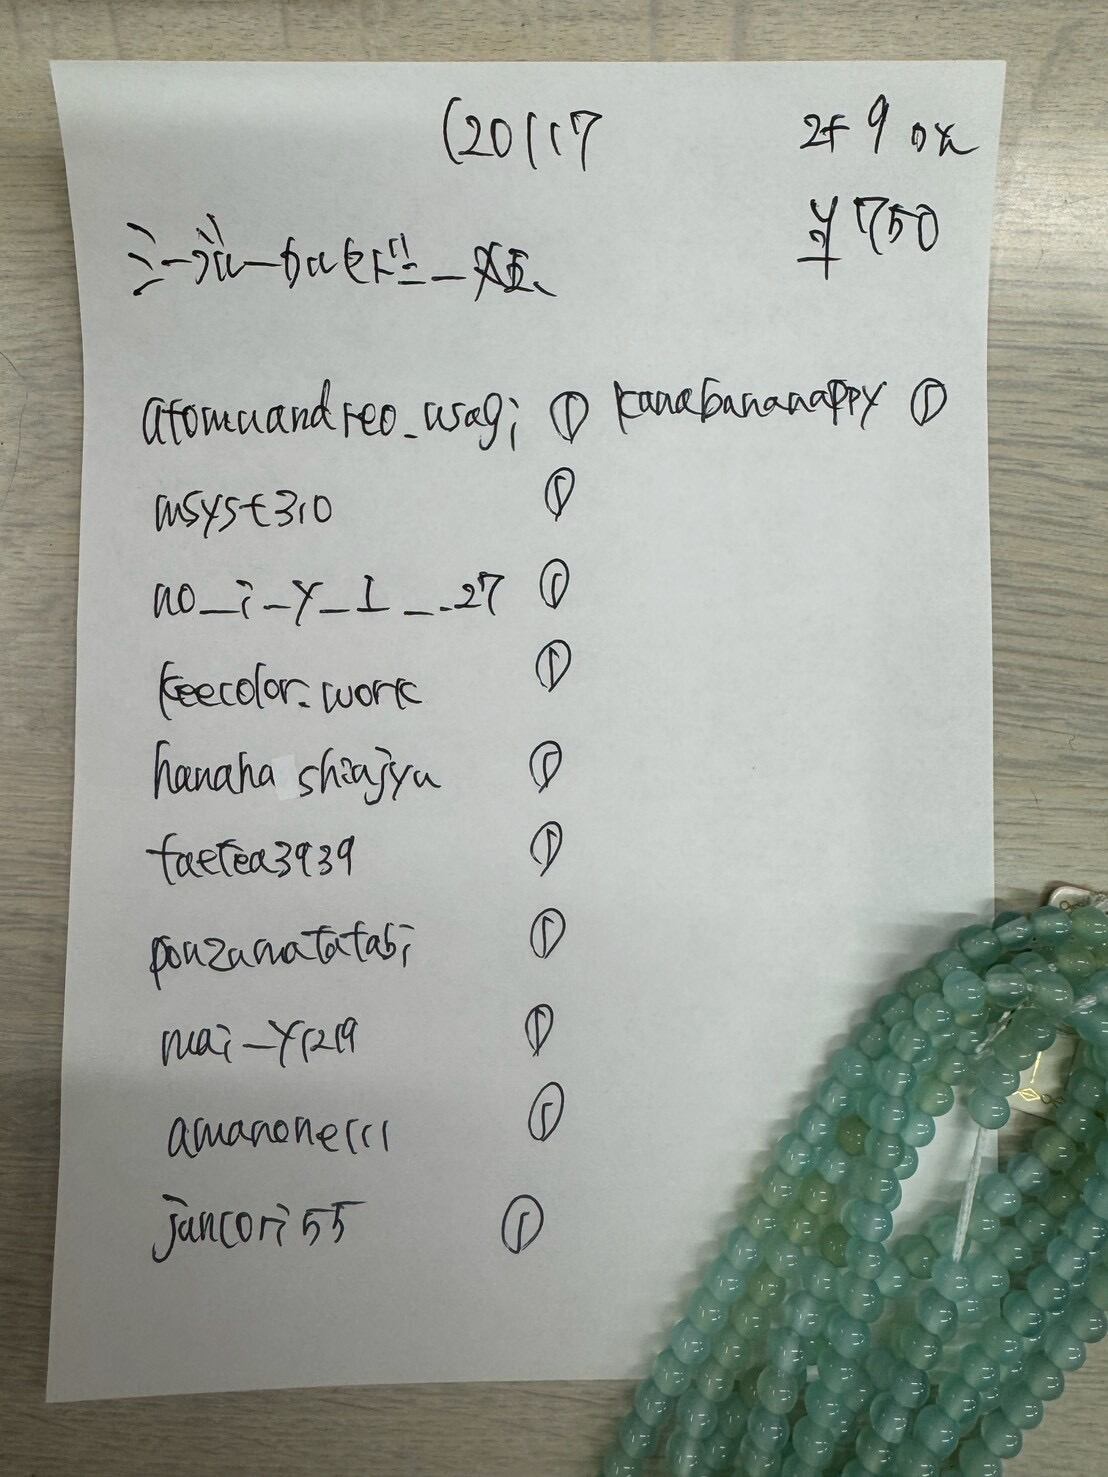 ¥750
atomuandreo_usagi ① kanabananappy ①
msyst310 ①
no_i_y_1__27 ①
keecolor.work ①
hanaha shiajyu ①
taetea3939 ①
ponzumatatabi ①
mai_y1219 ①
amanone111 ①
jancori55 ①